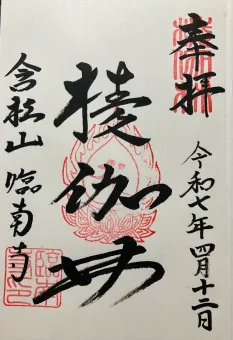 奉拝
令和七年四月十二日
楞伽林
含松山 臨南寺